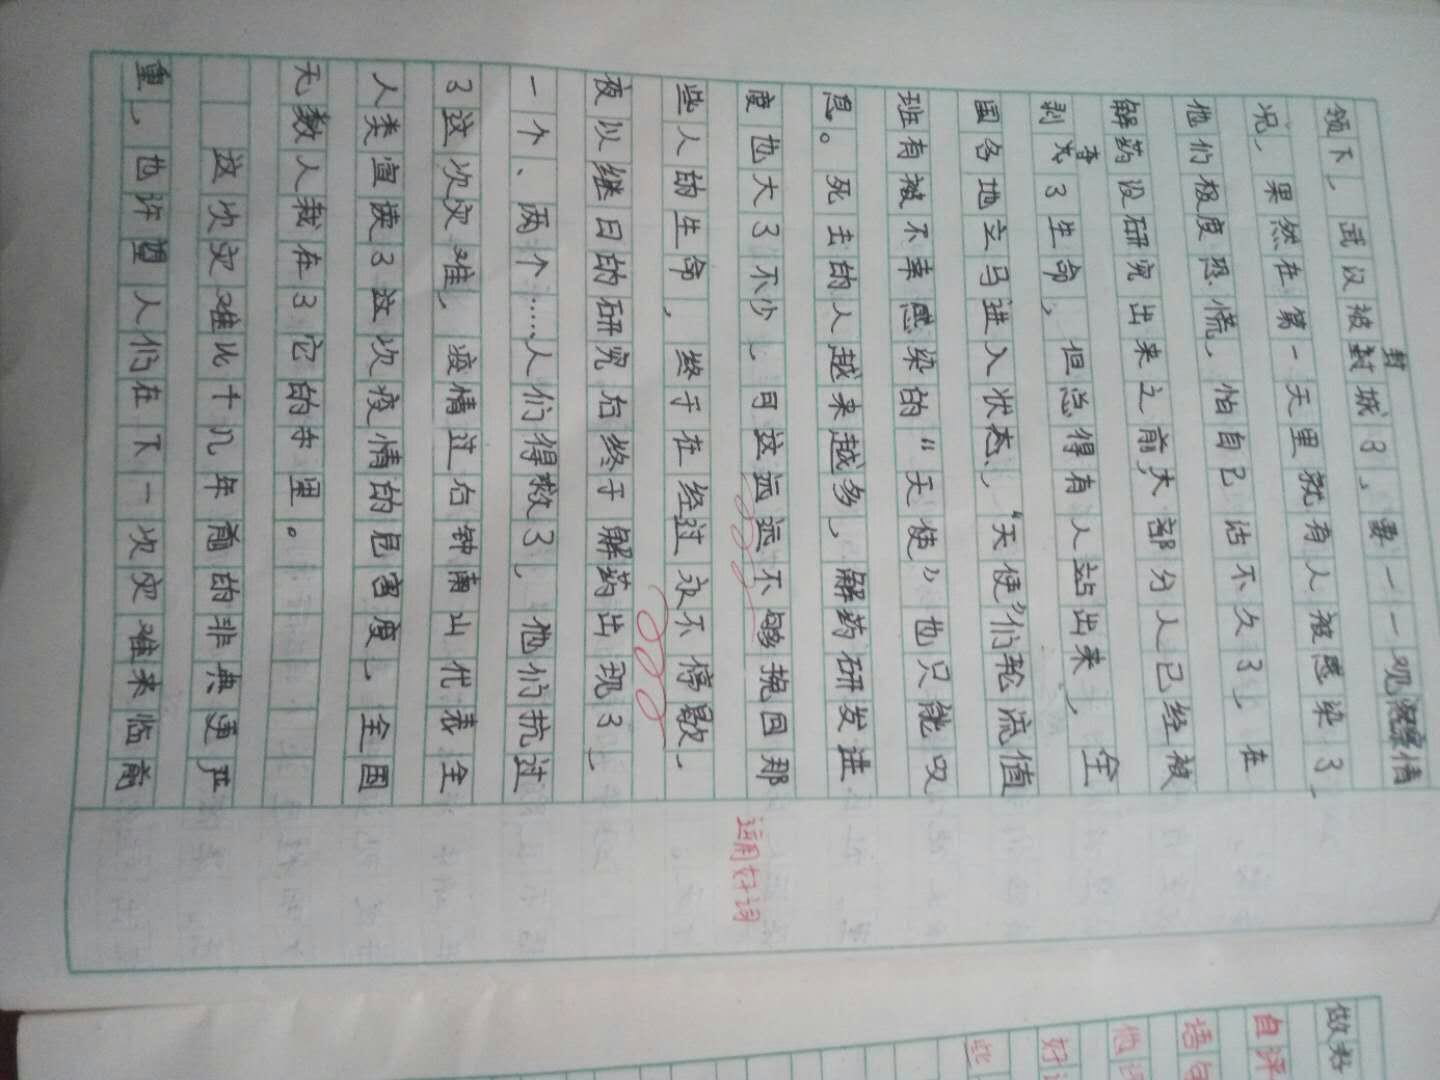 领下,武汉被封城了,要一一观察情
况,果然在第一天里就有人被感染了,
他们极度恐慌,怕自己活不久了,在
解药没研究出来之前,大部分人已经被
剥夺了生命,但总得有人站出来,全
国各地立马进入状态,“天使”们轮流值
班有被不幸感染的“天使”也只能叹
息。死去的人越来越多,解药研发进
度也大了不少,可这远远不够挽回那
些人的生命,终于在经过永不停歇、
夜以继日的研究后终于解药出现了,
一个、两个……人们得救了,他们抗过
了这次灾难,疫情过后钟南山代表全
人类宣读了这次疫情的危害度,全国
无数人栽在了它的手里。
这次灾难比十几年前的非典更严
重,也许望人们在下一次灾难来临前
运用好词
做好
自评
语句
他
好
些